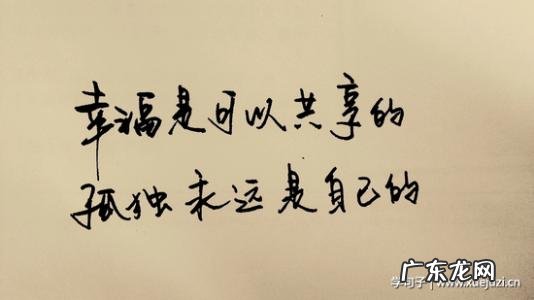 幸福是可以共享的
孤独永远是自己的
学句子 | www.xuejuzi.cn
广东龙网